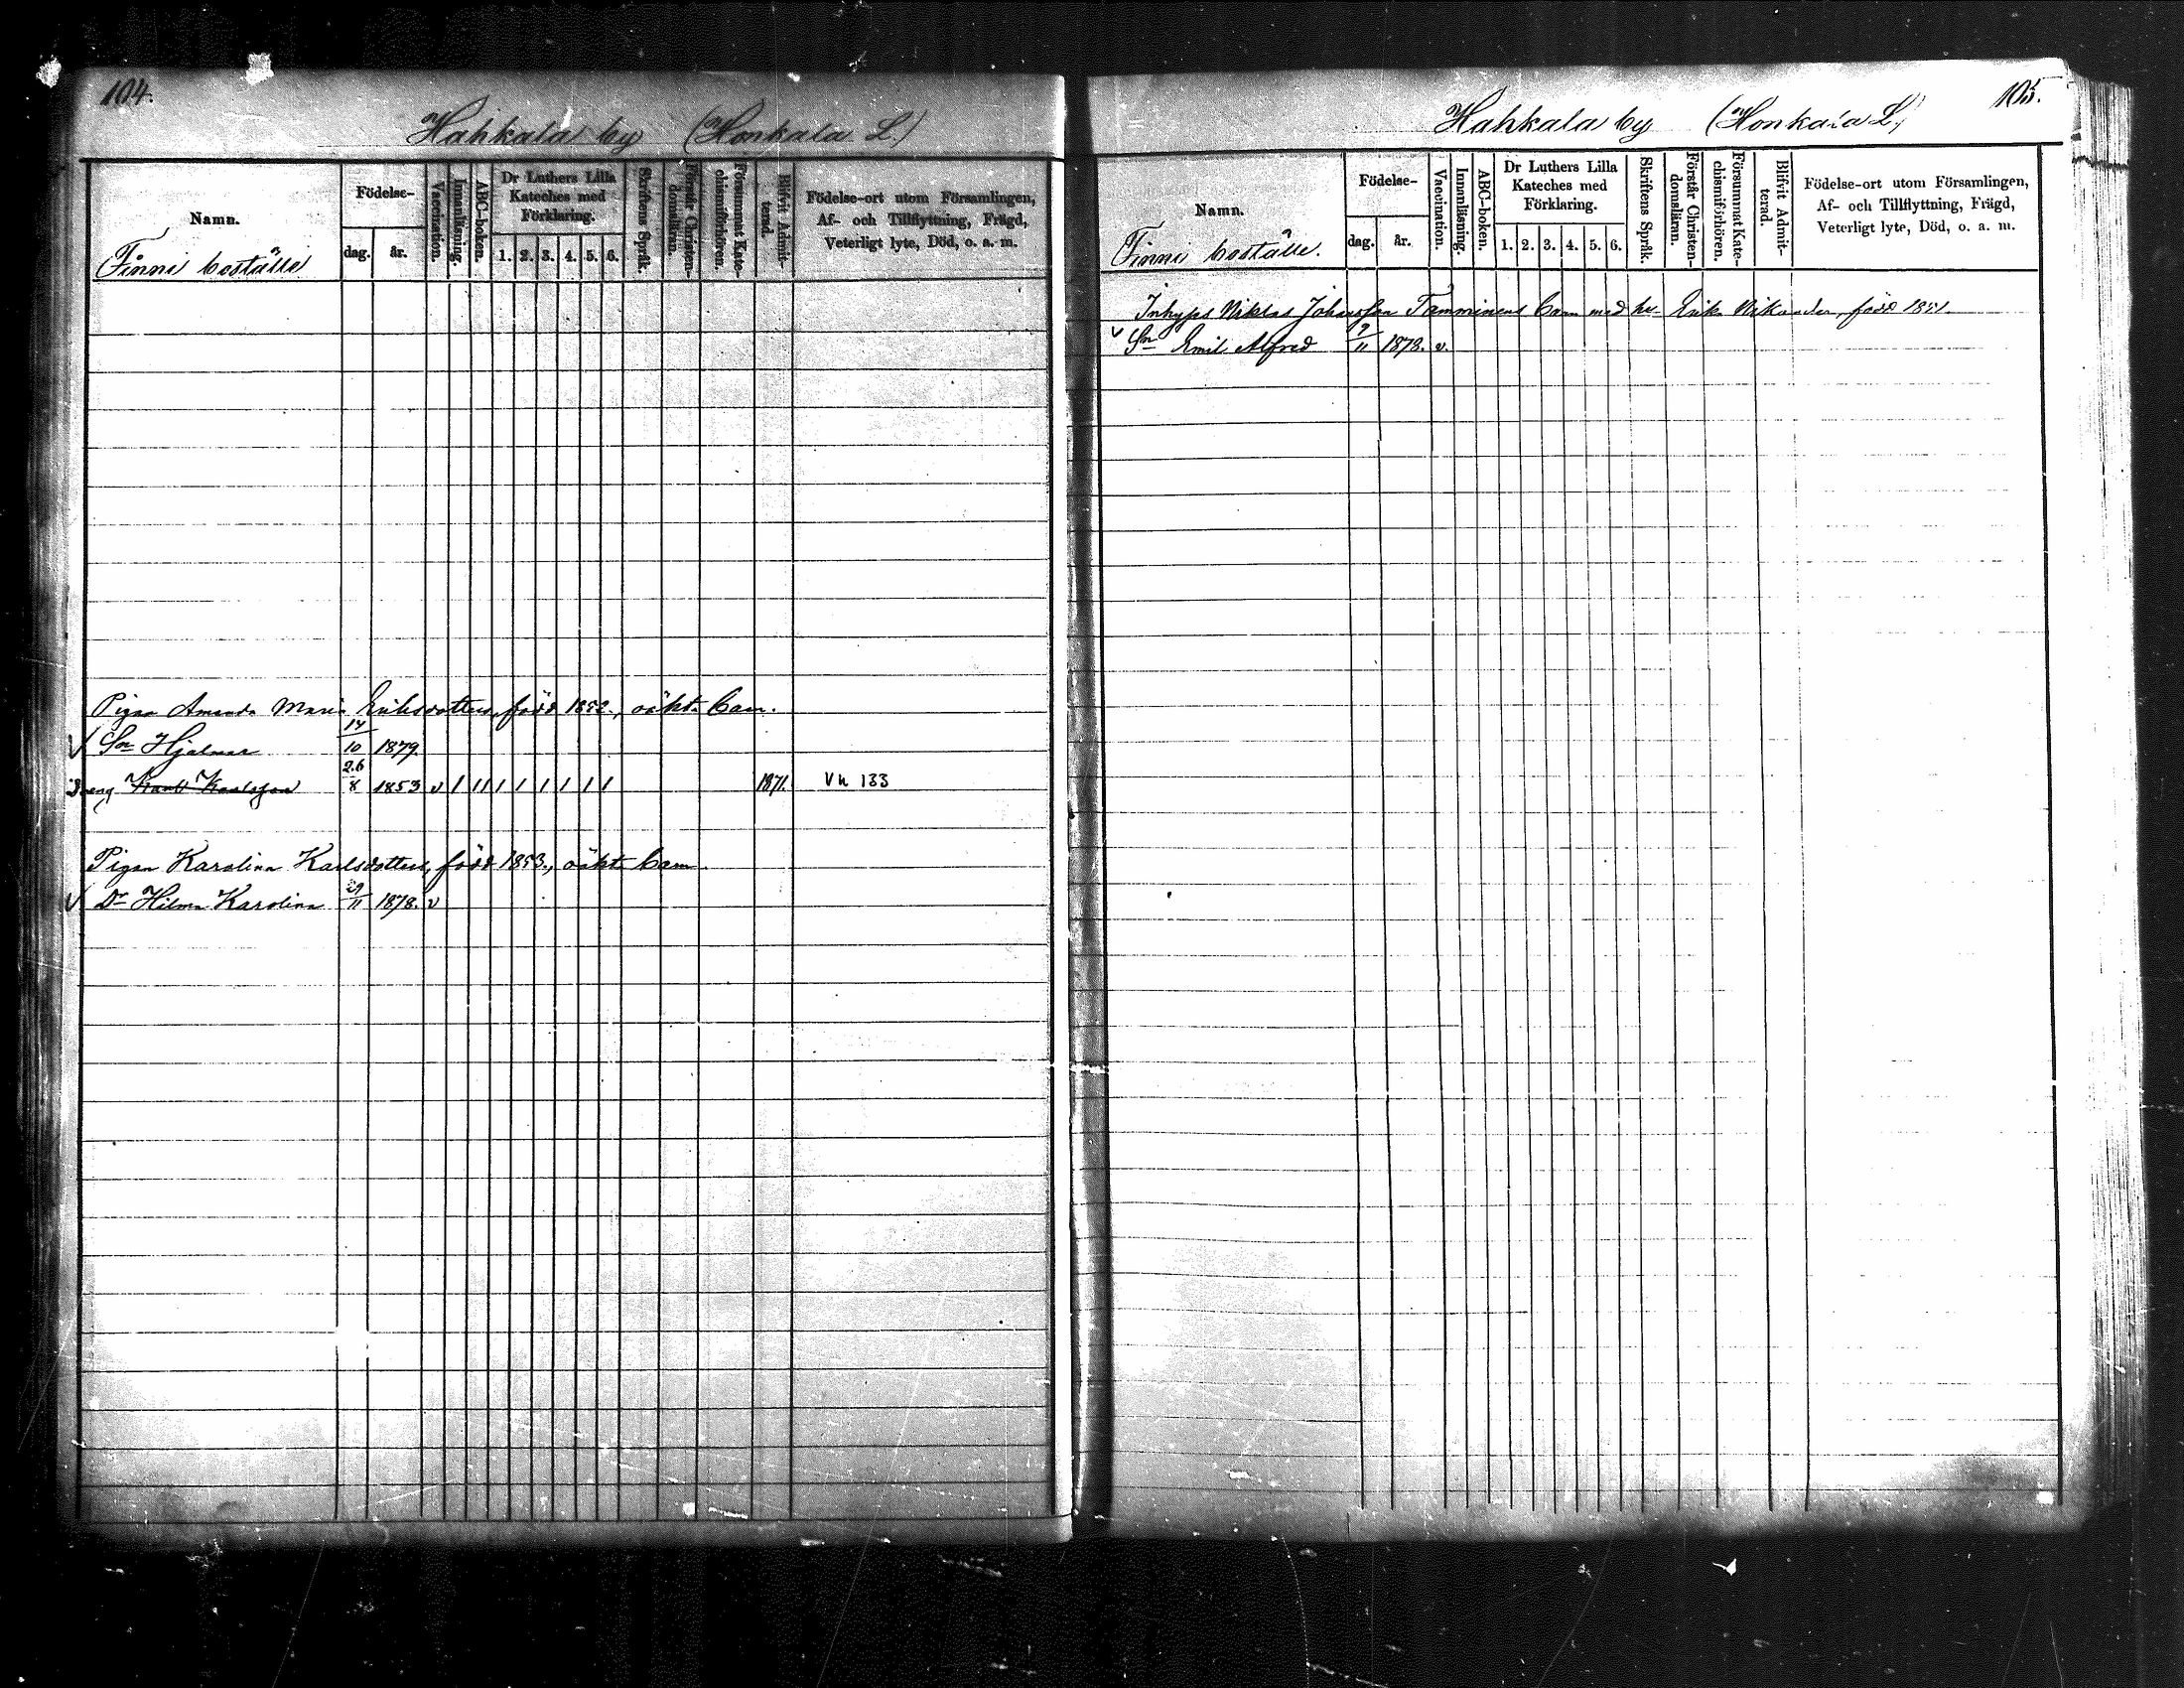 104.
Hahkala by (Honkala L.)
Namn.
Födelse-
dag.
år.
Vaccination.
Innanläsning.
ABC-boken.
Dr Luthers Lilla
Kateches med
Förklaring.
1. 2. 3. 4. 5. 6.
Skriftens Språk.
Förstår Christen-
domsläran.
Försummat Kate-
chismiförhören.
Blifvit Admit-
terad.
Födelse-ort utom Församlingen,
Af- och Tillflyttning, Frägd,
Veterligt lyte, Död, o. a. m.
Finni boställe
Pigan Amanda Maria Eriksdotters, född 1852., oäkta barn.
v Sn Hjalmar 14/10 1879.
Dreng Karl Karlsson 26/8 1853 v 1 11 1 1 1 1 1 1 1871. Vh 133
Pigan Karolina Karlsdotters, född 1853., oäkta barn.
v Dr Hilma Karolina 29/11 1878. v
105.
Hahkala by (Honkala L.)
Namn.
Födelse-
dag.
år.
Vaccination.
Innanläsning.
ABC-boken.
Dr Luthers Lilla
Kateches med
Förklaring.
1. 2. 3. 4. 5. 6.
Skriftens Språk.
Förstår Christen-
domsläran.
Försummat Kate-
chismiförhören.
Blifvit Admit-
terad.
Födelse-ort utom Församlingen,
Af- och Tillflyttning, Frägd,
Veterligt lyte, Död, o. a. m.
Finni boställe.
Inhyses Niklas Johansson Tamminens barn med hu. Erika Nikander, född 1851.
v Sn Emil Alfred 9/11 1878. v.